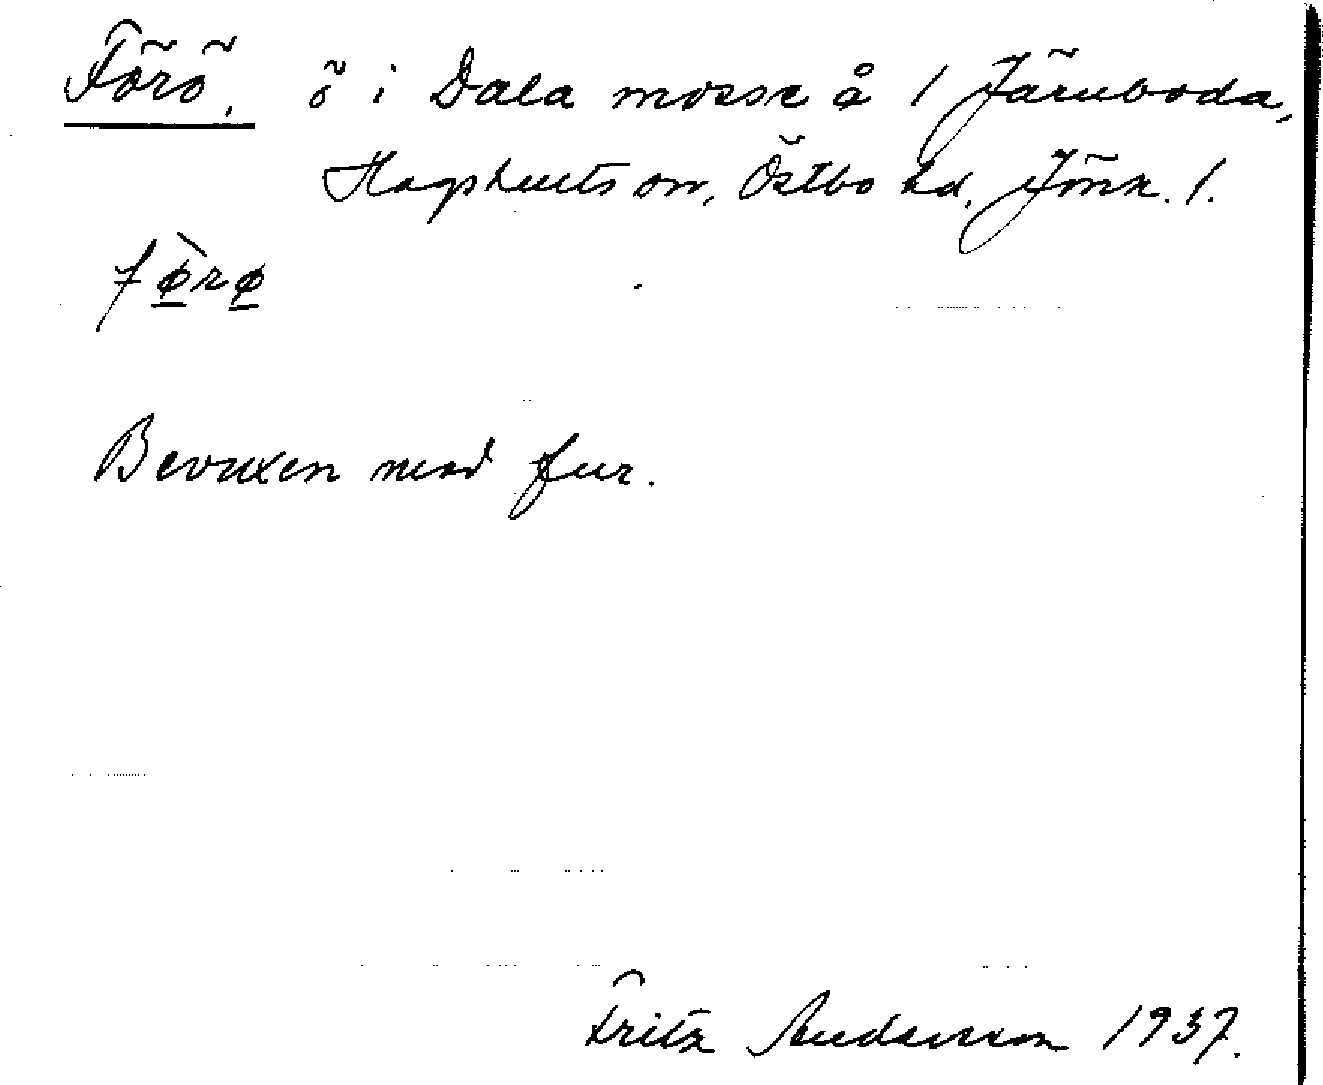 Förö, ö i Dala mosse å 1 Järnboda,
Hagshults sn, Östbo hd, Jönk. l.
fø̀rø
Bevuxen med fur.
Fritz Andersson 1937.